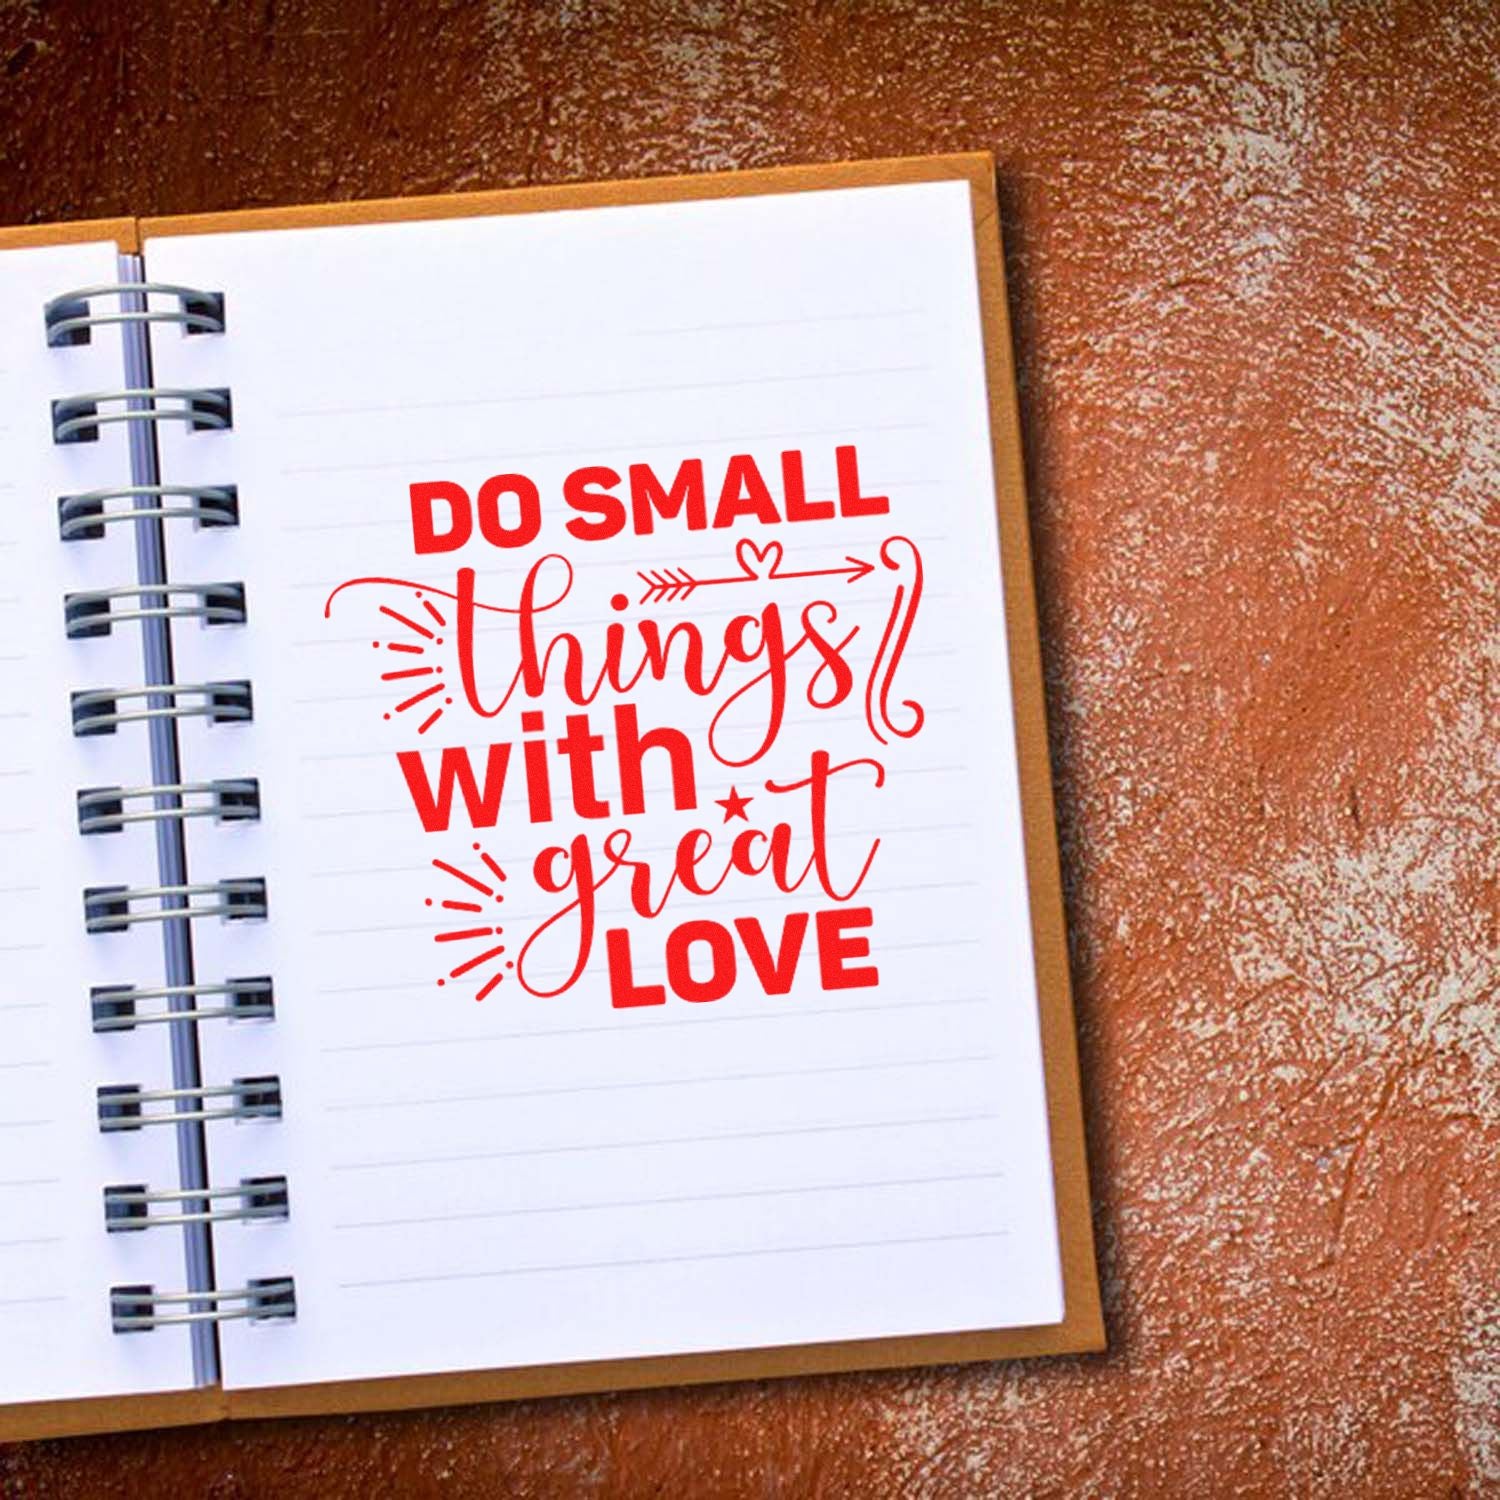 DO SMALL
things
with
great
LOVE